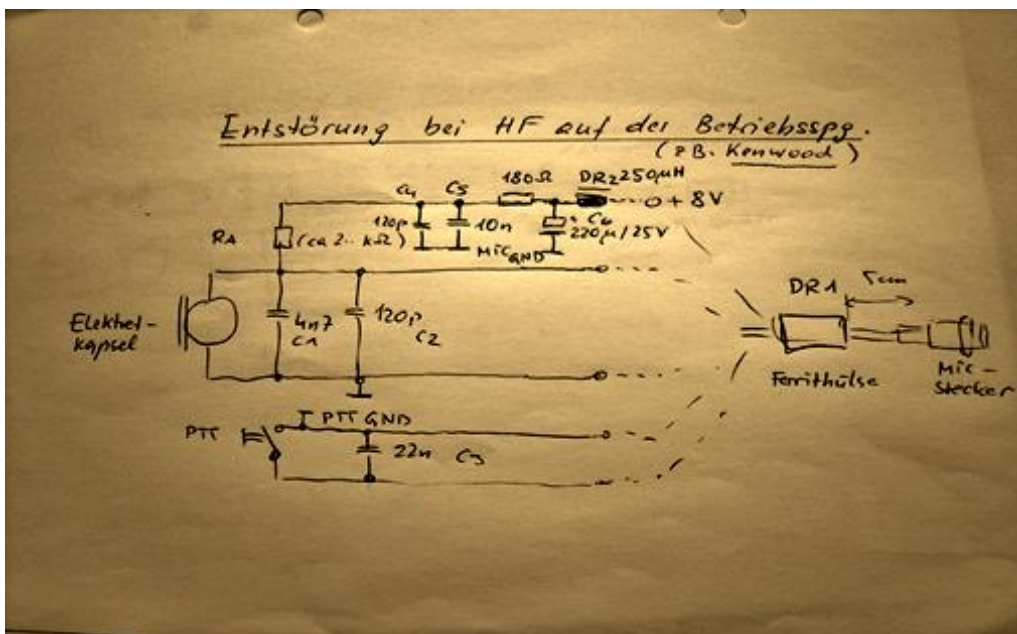 Entstörung bei HF auf der Betriebsspg.
(z B. Kenwood)
C4 C5 180Ω DR2 250µH
120p 10n + C6 220µ/25V o + 8V
RA (ca 2.. kΩ) Mic GND
Elektret-
kapsel
4n7
C1
120p
C2
DR1 5cm
Ferrithülse
Mic-
Stecker
PTT PTT GND
22n C3